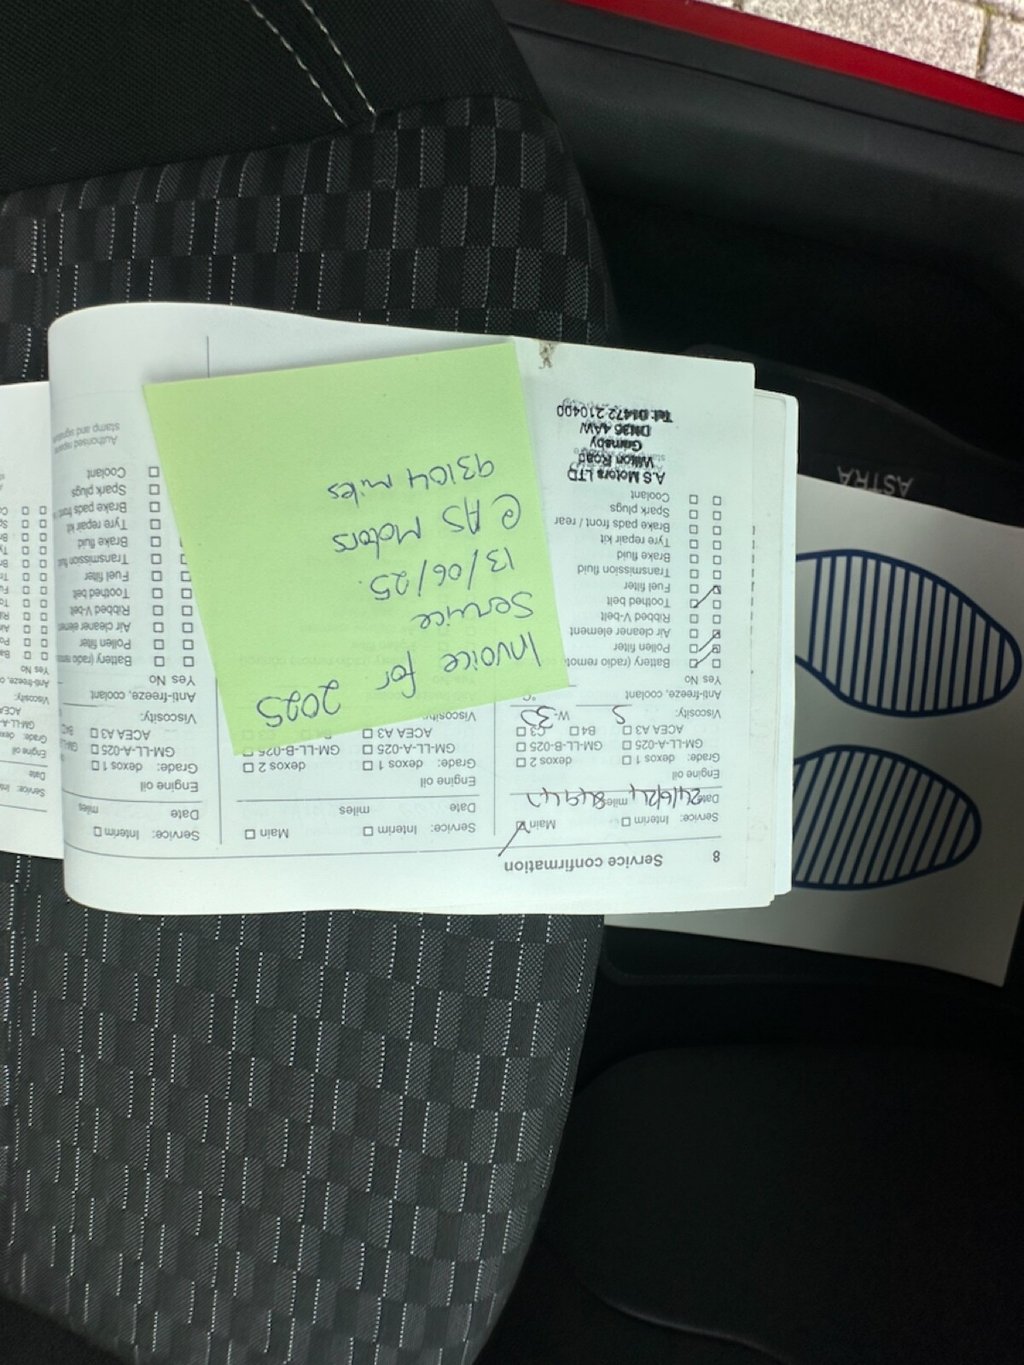 8 Service confirmation
Service: Interim Main
Date 24/6/24 miles
Engine oil
Grade: dexos 1 dexos 2
GM-LL-A-025 GM-LL-B-025
ACEA A3 B4 C3
Viscosity: 5 W- 30
Anti-freeze, coolant
Yes No
Battery (radio remote
Pollen filter
Air cleaner element
Ribbed V-belt
Toothed belt
Fuel filter
Transmission fluid
Brake fluid
Tyre repair kit
Brake pads front / rear
Spark plugs
Coolant
A.S Motors LTD
Wilton Road
Grimsby
DN36 4AW
Tel: 01472 210400
Service: Interim Main
Date miles
Engine oil
Grade: dexos 1 dexos 2
GM-LL-A-025 GM-LL-B-025
ACEA A3
Viscosity:
Invoice for 2025
Service
13/06/25.
@ AS Motors
93104 miles
Service: Interim
Date miles
Engine oil
Grade: dexos 1
GM-LL-A-025
ACEA A3
Viscosity:
Anti-freeze, coolant
Yes No
Battery (radio remo
Pollen filter
Air cleaner element
Ribbed V-belt
Toothed belt
Fuel filter
Transmission flu
Brake fluid
Tyre repair kit
Brake pads front
Spark plugs
Coolant
Authorised repaire
stamp and signatu
Service: Int
Date
Engine oil
Grade:
GM-LL-A
ACEA
Viscosity:
Anti-freeze, c
Yes No
ASTRA